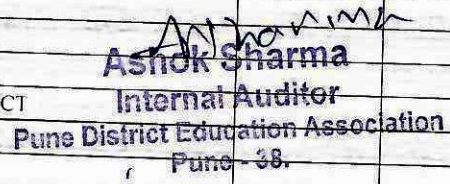 Asharma
Ashok Sharma
CT
Internal Auditor
Pune District Education Association
Pune - 38.